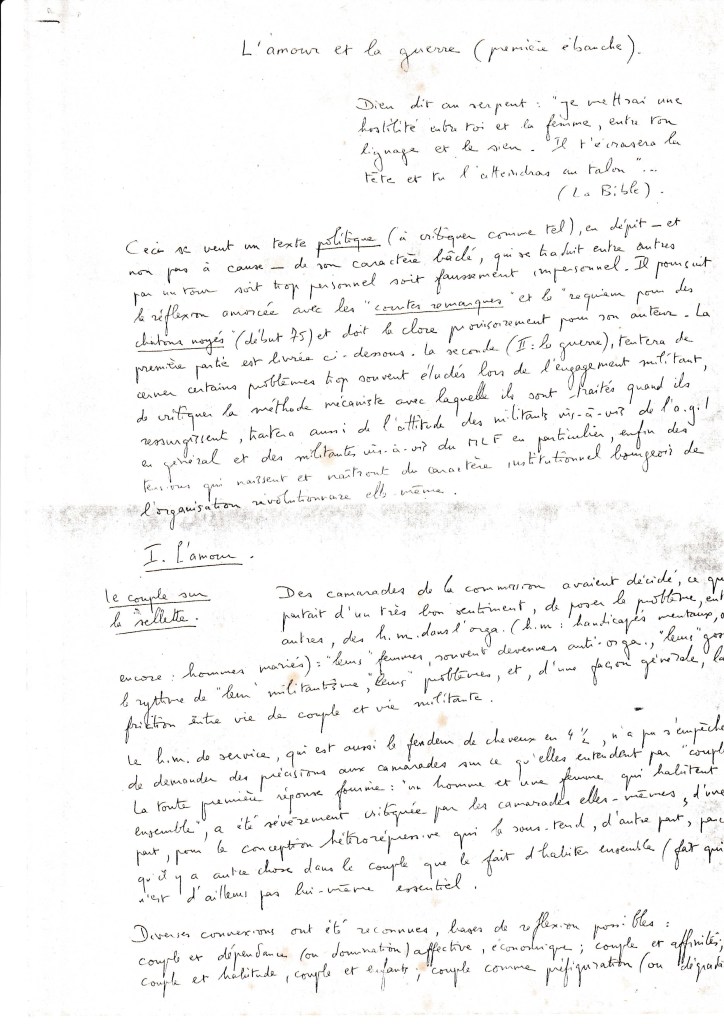 L'amour et la guerre (première ébauche).
Dieu dit au serpent : "je mettrai une
hostilité entre toi et la femme, entre ton
lignage et le sien. Il t'écrasera la
tête et tu l'atteindras au talon"...
(La Bible).
Ceci se veut un texte politique (à critiquer comme tel), en dépit — et
non pas à cause — de son caractère bâclé, qui se traduit entre autres
par un tour soit trop personnel soit faussement impersonnel. Il poursuit
la réflexion amorcée avec les "courtes remarques" et le "requiem pour des
chatons noyés" (début 75) et doit la clore provisoirement pour son auteur. La
première partie est livrée ci-dessous. La seconde (II : la guerre), tentera de
cerner certains problèmes trop souvent éludés lors de l'engagement militant,
de critiquer la méthode mécaniste avec laquelle ils sont traités quand ils
ressurgissent, traitera aussi de l'attitude des militants vis-à-vis de l'o.g.!
en général et des militantes vis-à-vis du MLF en particulier, enfin des
tensions qui naissent et naîtront du caractère institutionnel bourgeois de
l'organisation révolutionnaire elle-même.
I. L'amour.
le couple sur
la sellette.
Des camarades de la commission avaient décidé, ce qu
partait d'un très bon sentiment, de poser le problème, ent
autres, des h.m. dans l'orga. (h.m : handicapés mentaux, o
encore : hommes mariés) : "leurs" femmes, souvent devenues anti-orga., "leurs" gos
le rythme de "leur" militantisme, "leurs" problèmes, et, d'une façon générale, la
friction entre vie de couple et vie militante.
Le h.m. de service, qui est aussi le fendeur de cheveux en 4 ½, n'a pu s'empêche
de demander des précisions aux camarades sur ce qu'elles entendent par "coupl
La toute première réponse fournie : "un homme et une femme qui habitent
ensemble", a été sévèrement critiquée par les camarades elles-mêmes, d'une
part, pour la conception hétérorépressive qui la sous-tend, d'autre part, parc
qu'il y a autre chose dans le couple que le fait d'habiter ensemble (fait qui
n'est d'ailleurs pas lui-même essentiel.
Diverses connexions ont été reconnues, bases de réflexion possibles :
couple et dépendance (ou domination) affective, économique ; couple et affinités ;
couple et habitude, couple et enfants ; couple comme préfiguration (ou dégrada